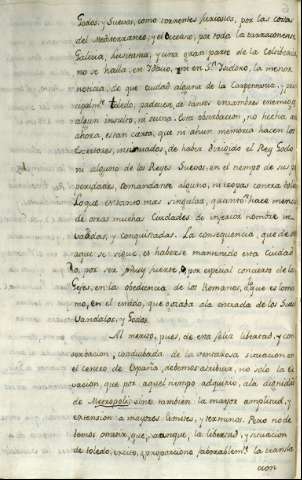 Godos, y Suevos, como torrentes furiosos, por las costas
del Mediterraneo, y el Oceano, por toda la tarraconense
Galicia, Lusitania, y una gran parte de la Celtiberia
no se halla, en Idacio, ni en Sn. Isidoro, la menor
noticia, de que ciudad alguna de la Carpentania, y
toledo, padeciese, de tantos enxambres enemigos
algun insulto, ni ruina. Esta observacion, no hecha
ahora, es tan cierta, que ni ahun memoria hacen los
Escritores, de haver dirigido el Rey Godo
ni alguno de los Reyes Suevos, en el tiempo de sus
comandante alguno, ni tropas contra
Lo que es tanto mas singular, quanto hace
de otras muchas Ciudades de inferior nombre
y conquistadas. La consequencia, que de
aqui se sigue, es haberse mantenido esta Ciudad
por ser muy fuerte, o por especial concurso de
en la obediencia de los Romanos, o que es lo
mo, en el estado, que gozaba a la entrada de los
Vandalos, y Godos.
Al merito, pues, de esta feliz libertad, y
coadiubada de la ventajosa situacion en
el centro de España, debemos atribuir, no solo la
vacion, que por aquel tiempo adquirio a la dignidad
de Metropoli; sino tambien la mayor amplitud, y
extension a mayores limites, y terminos. Pero no de
bemos omitir, que, aunque, la libertad, y situacion
de toledo, proporciono la transla
cion